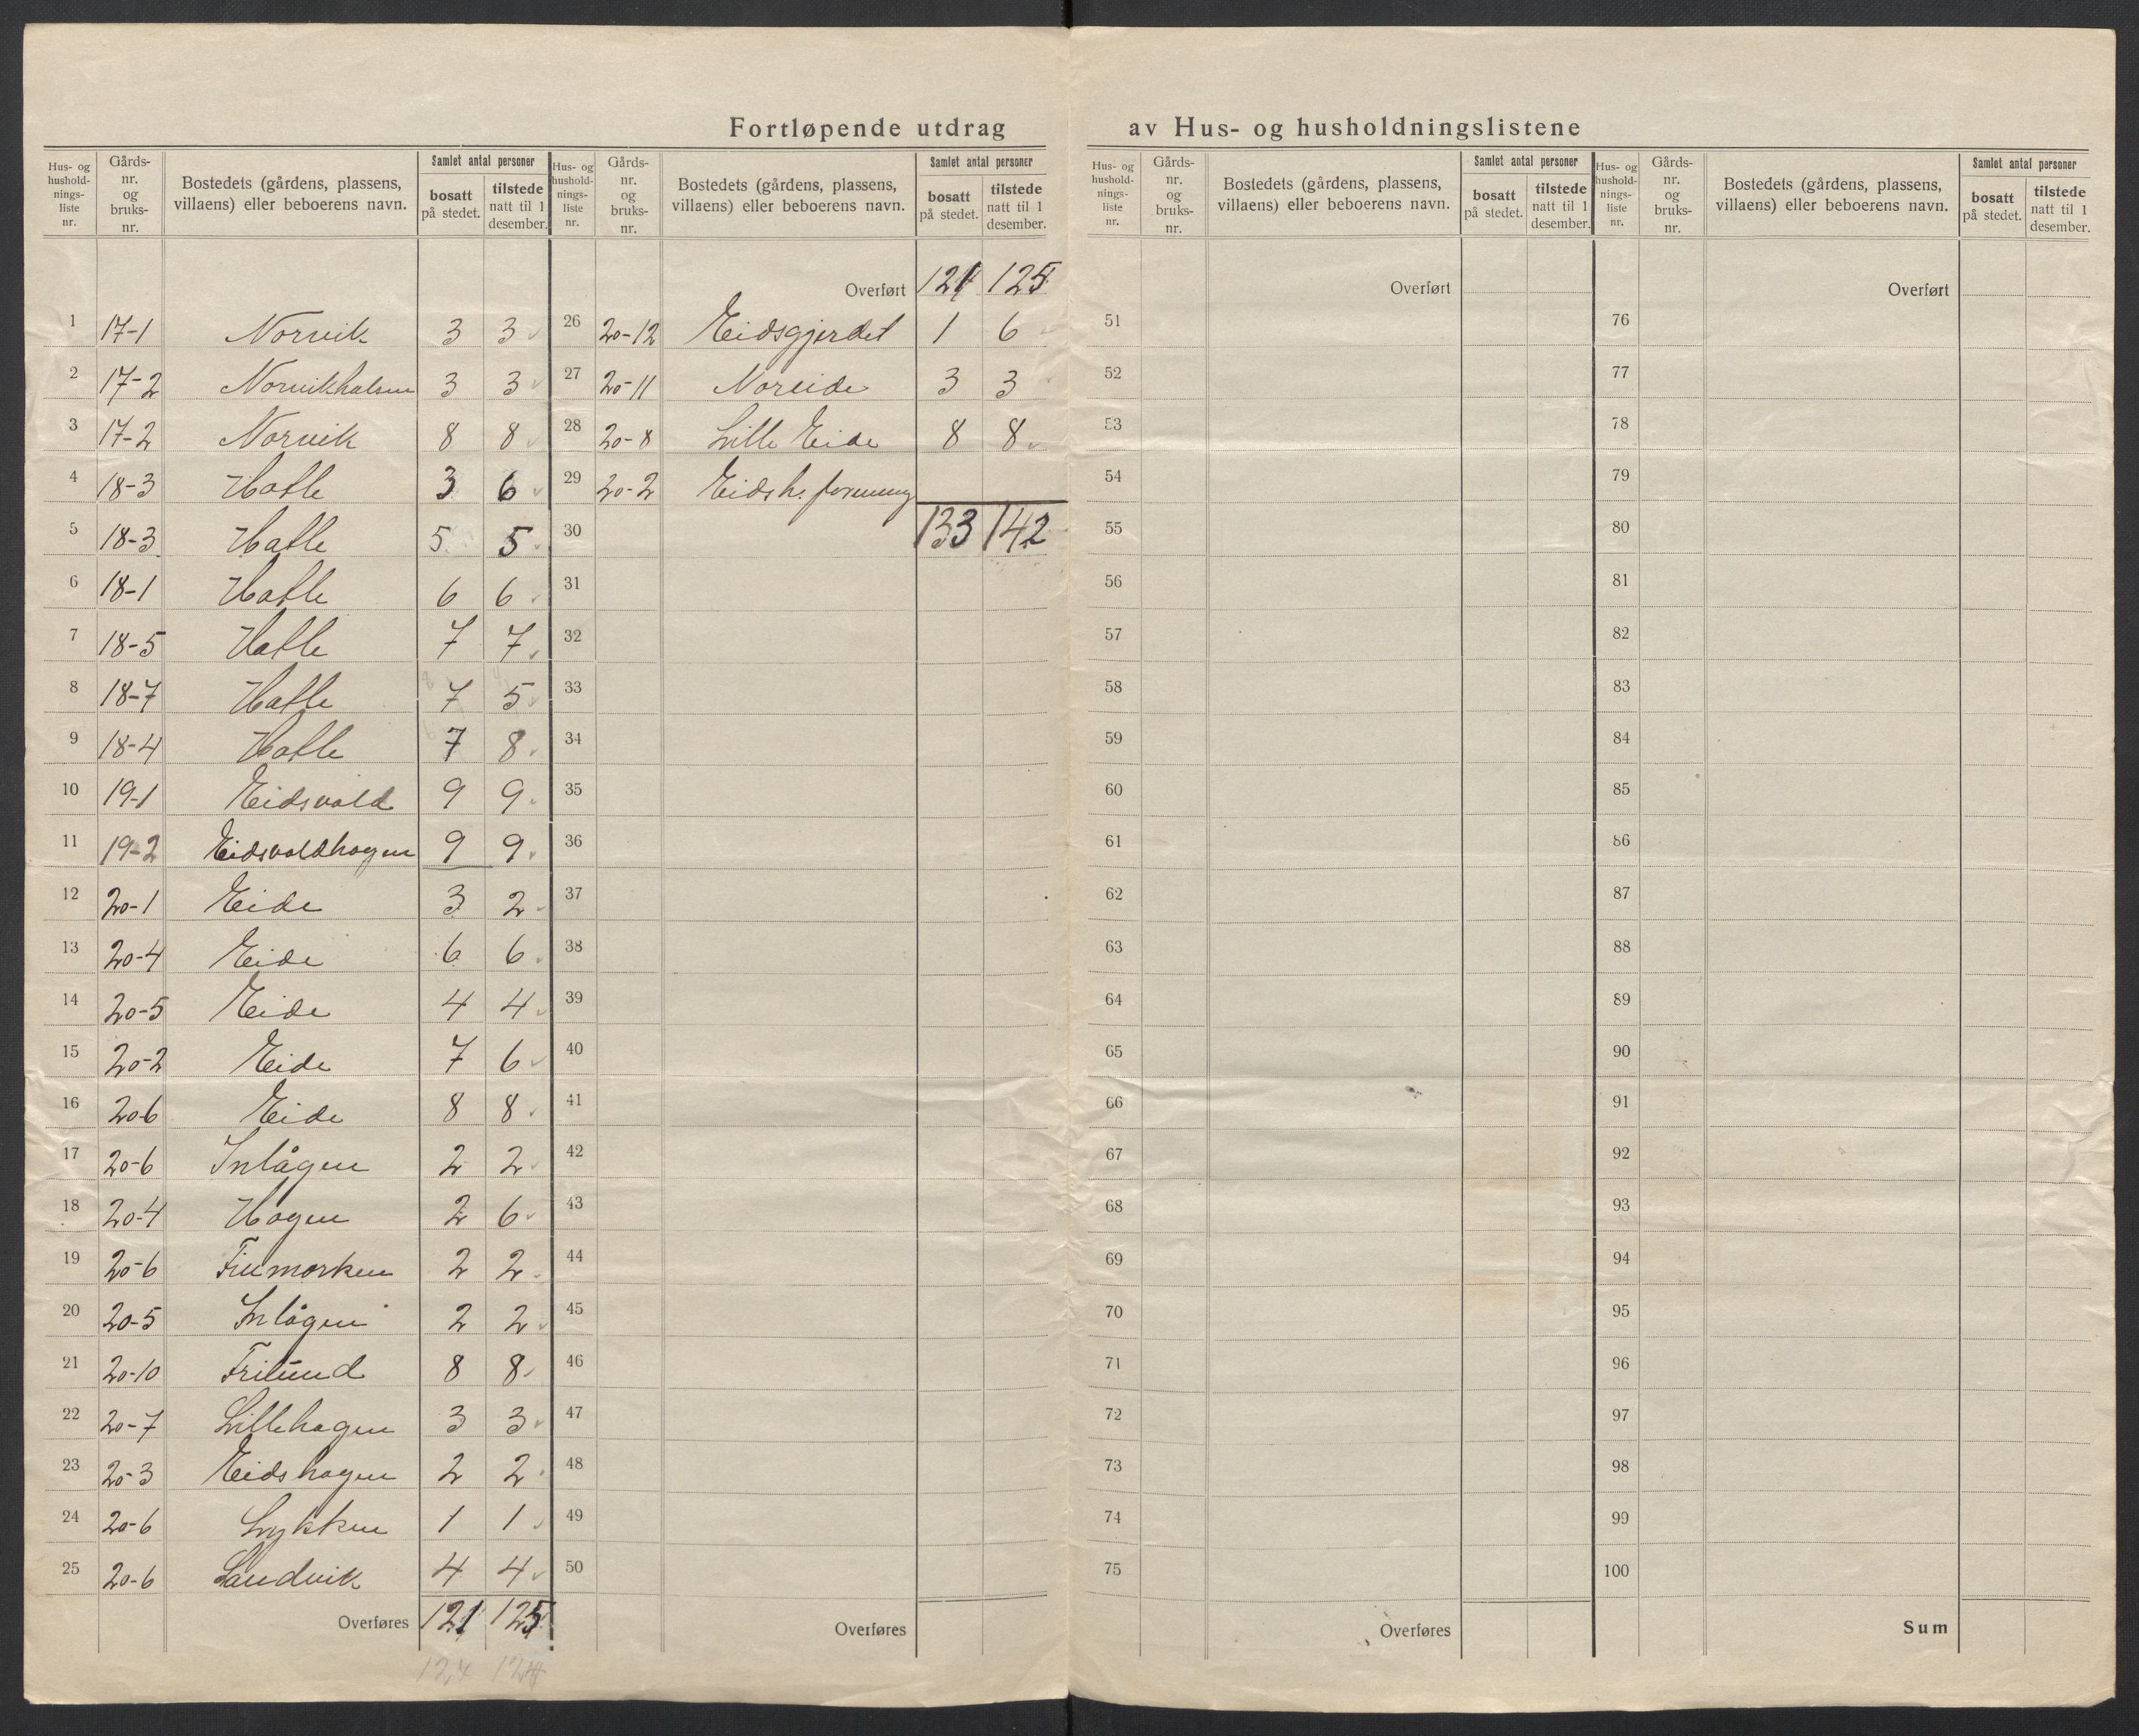 Fortløpende utdrag av Hus- og husholdningslistene
Hus- og hushold-nings-liste nr. Gårds-nr. og bruks-nr. Bostedets (gårdens, plassens, villaens) eller beboerens navn. Samlet antal personer bosatt på stedet. tilstede natt til 1 desember.
Hus- og hushold-nings-liste nr. Gårds-nr. og bruks-nr. Bostedets (gårdens, plassens, villaens) eller beboerens navn. Samlet antal personer bosatt på stedet. tilstede natt til 1 desember.
1 17-1 Norvik 3 3
2 17-2 Norvikhalsen 3 3
3 17-2 Norvik 8 8
4 18-3 Hatle 3 6
5 18-3 Hatle 5 5
6 18-1 Hatle 6 6
7 18-5 Hatle 7 7
8 18-7 Hatle 7 5
9 18-4 Hatle 7 8
10 19-1 Eidsvold 9 9
11 19-2 Eidsvoldhagen 9 9
12 20-1 Eide 3 2
13 20-4 Eide 6 6
14 20-5 Eide 4 4
15 20-2 Eide 7 6
16 20-6 Eide 8 8
17 20-6 Inlågen 2 2
18 20-4 Hagen 2 6
19 20-6 Finmorken 2 2
20 20-5 Inlågen 2 2
21 20-10 Frilund 8 8
22 20-7 Lillehagen 3 3
23 20-3 Eidshagen 2 2
24 20-6 Lykken 1 1
25 20-6 Sandvik 4 4
Overføres 121 125
124 124
Overført 121 125
26 20-12 Eidsgjerdet 1 6
27 20-11 Noreide 3 3
28 20-8 Lille Eide 8 8
29 20-2 Eidsh. forening
30 133 142
31
32
33
34
35
36
37
38
39
40
41
42
43
44
45
46
47
48
49
50
Overføres
Hus- og hushold-nings-liste nr. Gårds-nr. og bruks-nr. Bostedets (gårdens, plassens, villaens) eller beboerens navn. Samlet antal personer bosatt på stedet. tilstede natt til 1 desember.
Overført
51
52
53
54
55
56
57
58
59
60
61
62
63
64
65
66
67
68
69
70
71
72
73
74
75
Overføres
Hus- og hushold-nings-liste nr. Gårds-nr. og bruks-nr. Bostedets (gårdens, plassens, villaens) eller beboerens navn. Samlet antal personer bosatt på stedet. tilstede natt til 1 desember.
Overført
76
77
78
79
80
81
82
83
84
85
86
87
88
89
90
91
92
93
94
95
96
97
98
99
100
Sum